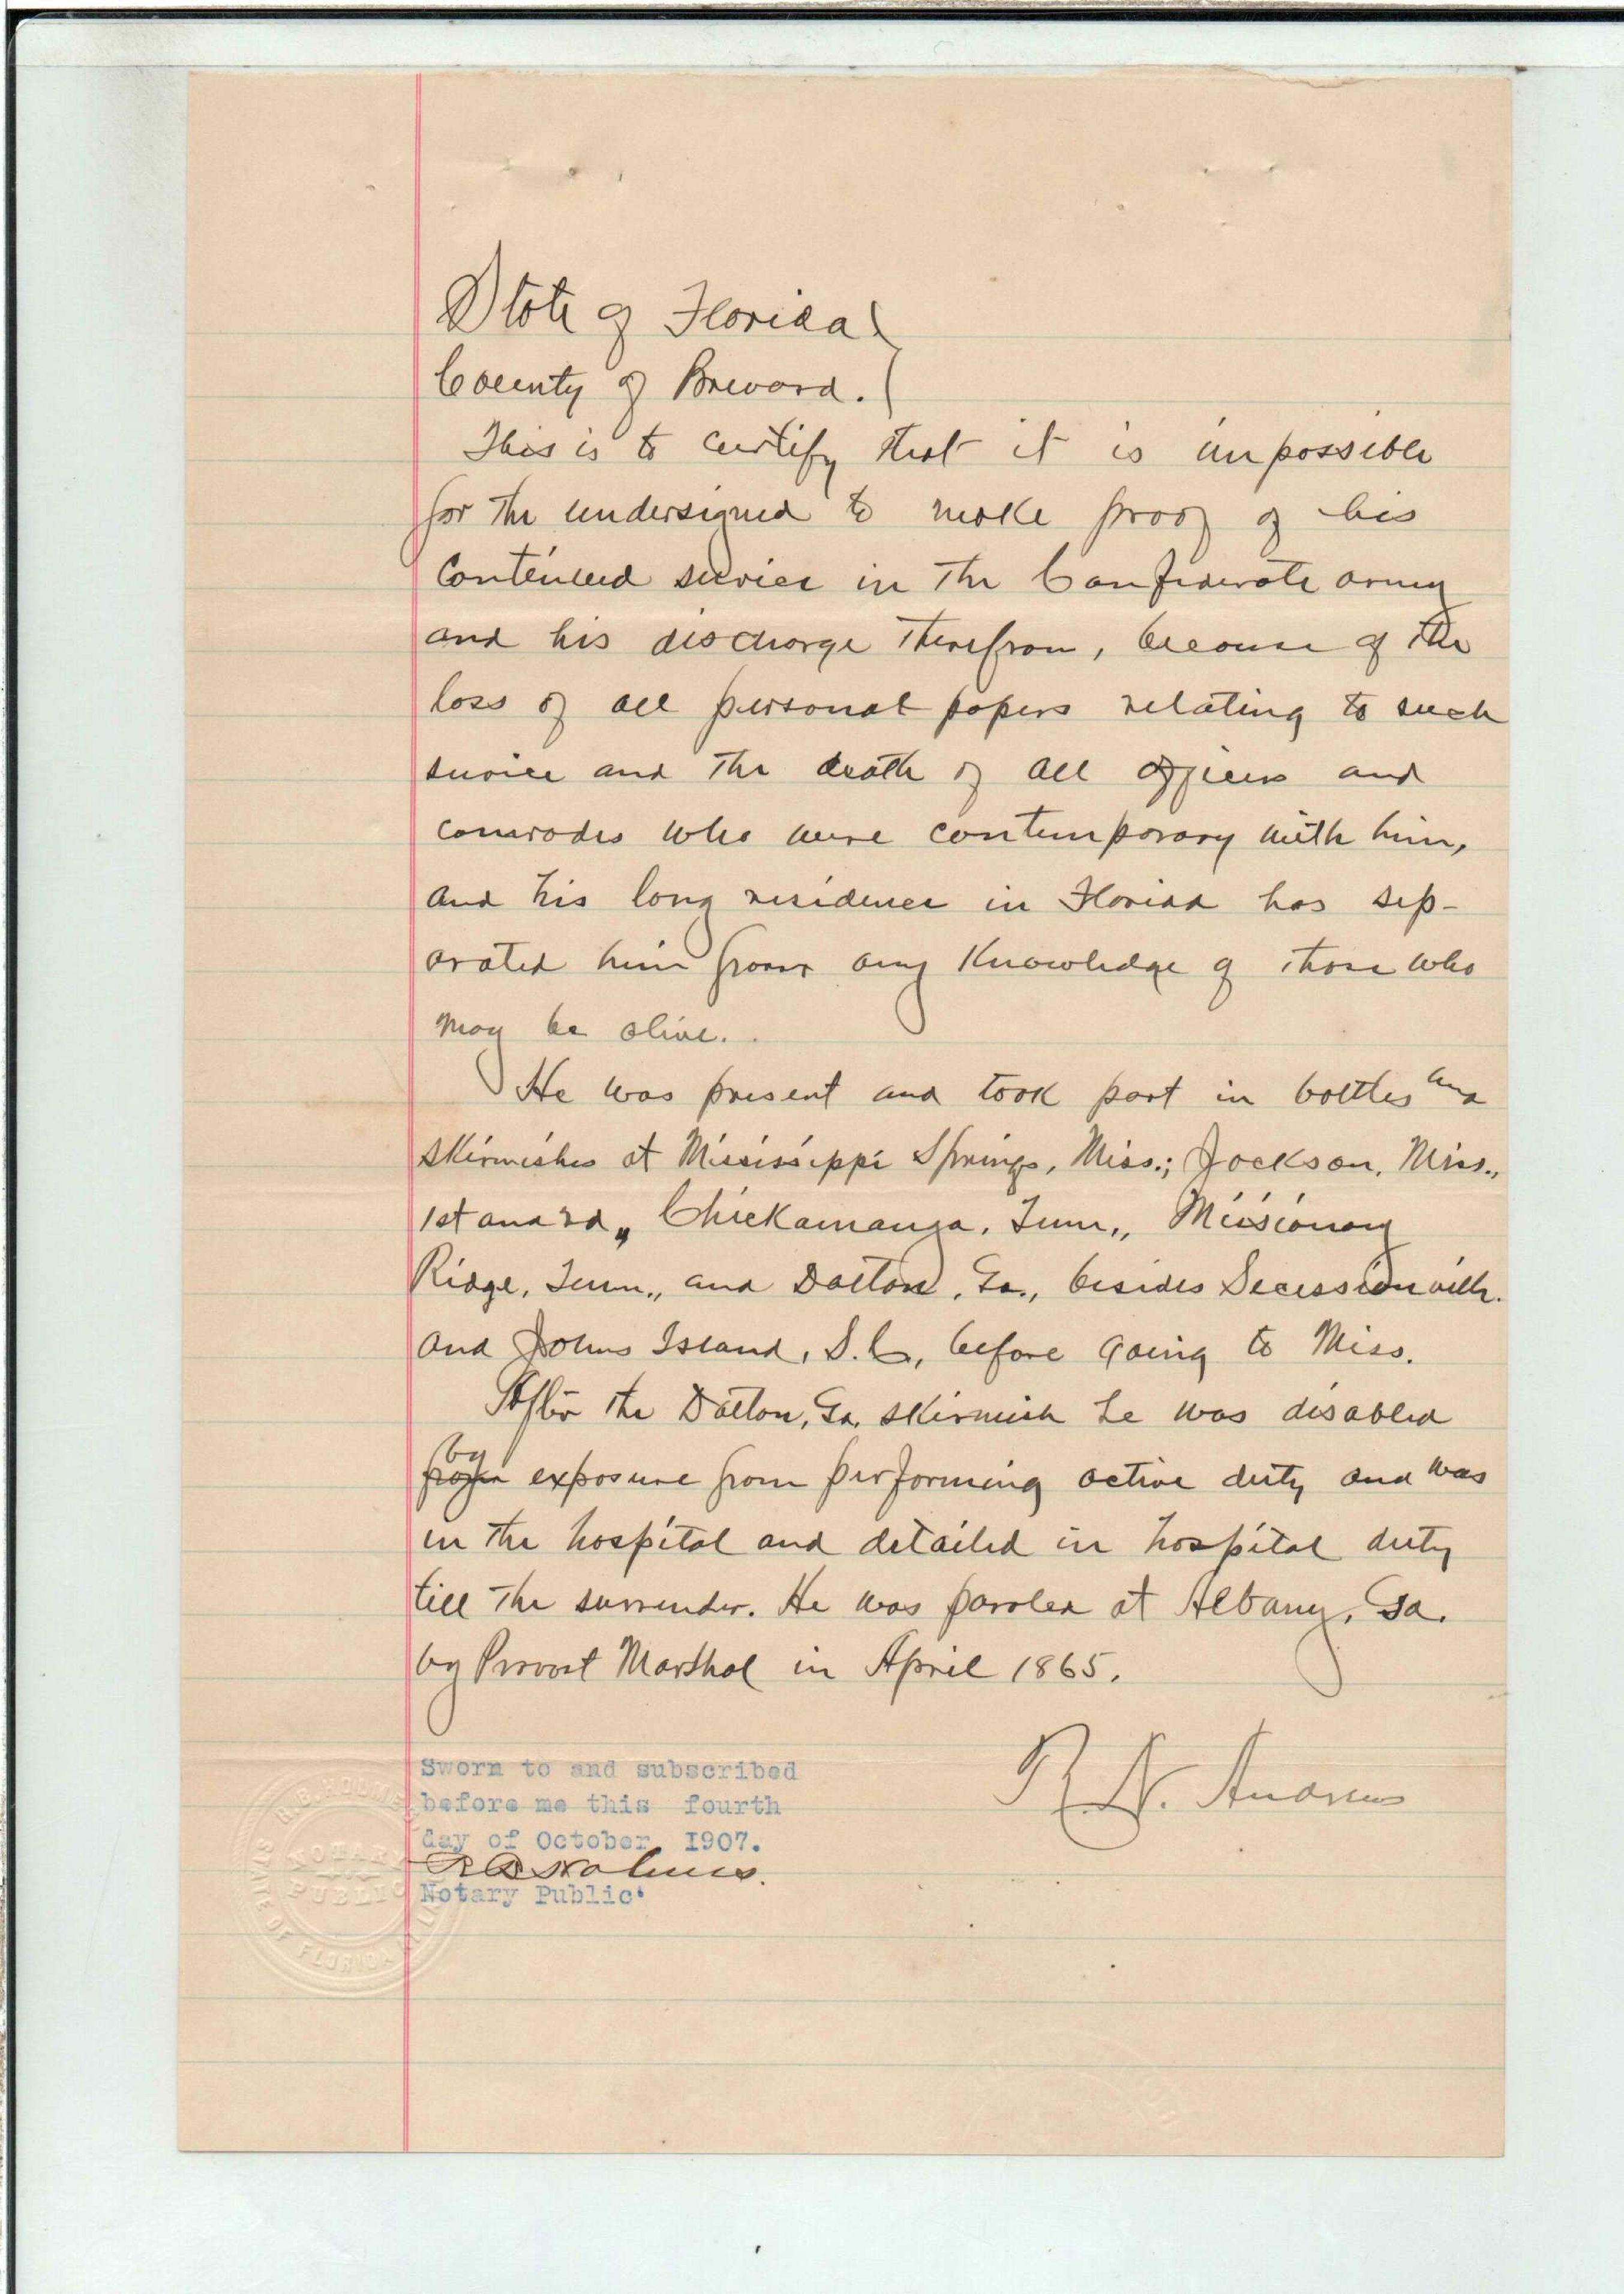 State of Florida
County of Brevard.
This is to certify that it is impossible
for the undersigned to make proof of his
Continued service in the Confederate army
and his discharge therefrom, because of the
loss of all personal papers relating to such
service and the death of all officers and
comrades who were contemporary with him,
and his long residence in Florida has sep-
arated him from any knowledge of those who
may be alive.
He was present and took part in battles and
skirmishes at Mississippi Springs, Miss.; Jackson, Miss.,
1st and 2d, Chickamauga, Tenn., Missionary
Ridge, Tenn., and Dalton, Ga., besides Secessionville.
and Johns Island, S.C., before going to Miss.
After the Dalton, Ga. skirmish he was disabled
by
from exposure from performing active duty and was
in the hospital and detailed in hospital duty
till the surrender. He was paroled at Albany, Ga.
by Provost Marshal in April 1865.
R. N. Andrews
Sworn to and subscribed
before me this fourth
day of October 1907.
R B Holmes.
Notary Public
R.B. HOLMES
NOTARY
PUBLIC
STATE OF FLORIDA